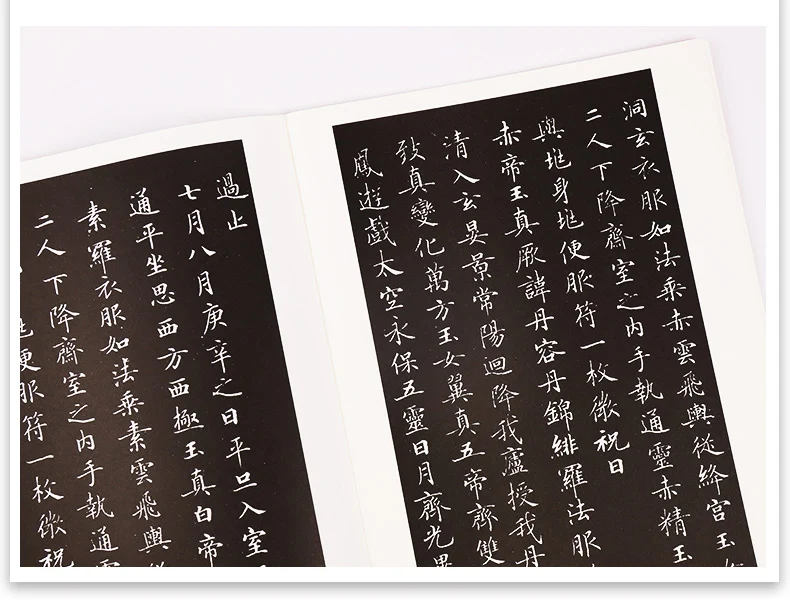 洞玄衣服如法乘赤雲飛輿從絳宮玉
二人下降齋室之內手執通靈赤精玉
與兆身兆便服符一枚微祝曰
赤帝玉真厥諱丹容丹錦緋羅法服
清入玄晏景常陽迴降我廬授我丹
致真變化萬方玉女翼真五帝齊雙
鳳遊戲太空永保五靈日月齊光
過止
七月八月庚辛之日平旦入室
通平坐思西方西極玉真白帝
素羅衣服如法乘素雲飛輿
二人下降齋室之內手執通
便服符一枚微祝